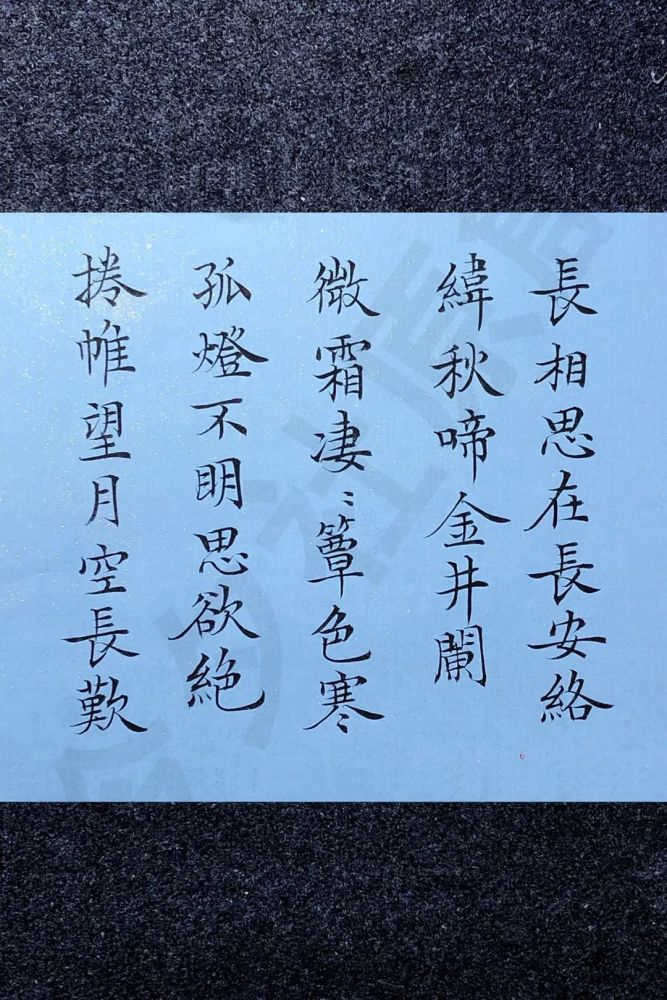 長相思在長安絡
緯秋啼金井闌
微霜凄〻簟色寒
孤燈不明思欲絶
捲帷望月空長歎